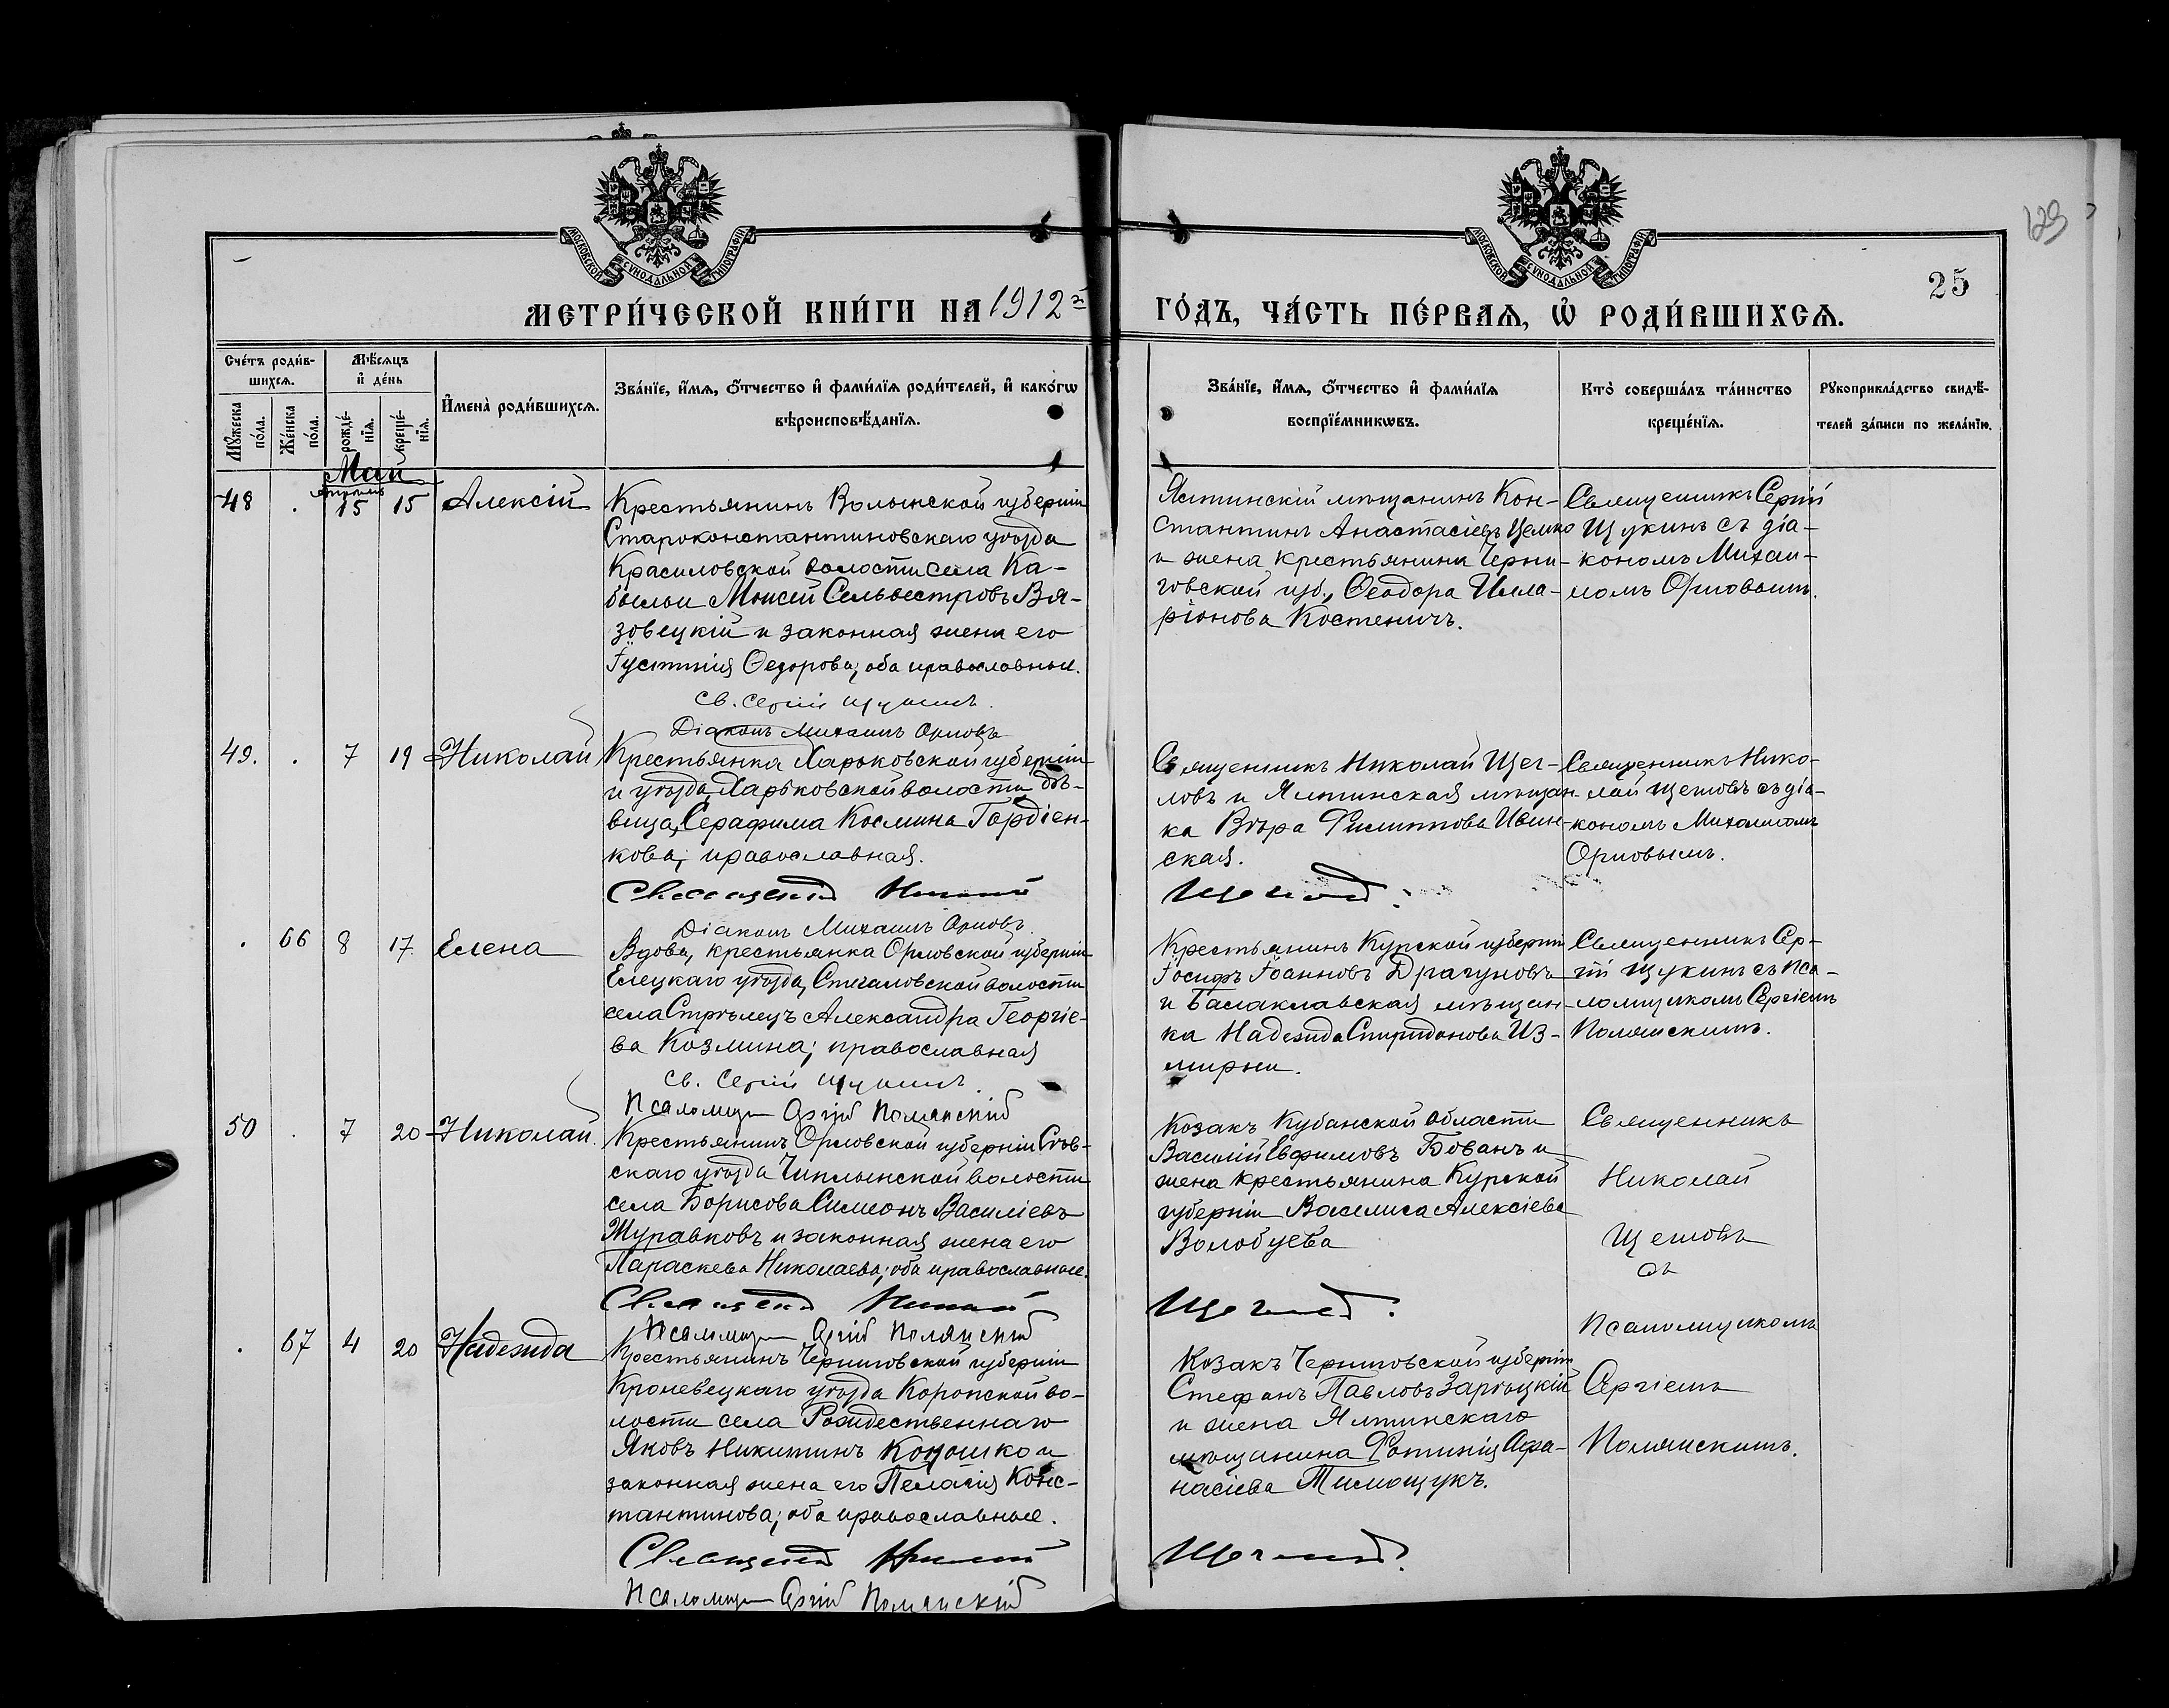 129
25
МОСКОВСКОЙ СѴНОДАЛЬНОЙ ТИПОГРАФІИ
МОСКОВСКОЙ СѴНОДАЛЬНОЙ ТИПОГРАФІИ
МЕТРИ́ЧЕСКОЙ КНИ́ГИ НА 1912 г.
ГО́ДЪ, ЧА́СТЬ ПЕ́РВАѦ, Ѽ РОДИ́ВШИХСѦ.
Сче́тъ роди́в-
шихсѧ.
Мѣ́сѧцъ
и҆ де́нь
Мꙋ́жеска по́ла.
Же́нска по́ла.
рожде́-нїѧ.
креще́-нїѧ.
И҆мена̀ роди́вшихсѧ.
Зва́нїе, и҆́мѧ, ѻ҆́тчество и҆ фами́лїѧ роди́телей, и҆ како́гѡ
вѣроисповѣ́данїѧ.
Зва́нїе, и҆́мѧ, ѻ҆́тчество и҆ фами́лїѧ
воспрїе́мникѡвъ.
Кто̀ соверша́лъ та́инство
креще́нїѧ.
Рꙋкоприкла́дство свидѣ́-
телей за́писи по жела́нїю.
Май
48 . Апрѣль 15 15 Алексій
Крестьянинъ Волынской губерніи
Староконстантиновскаго уѣзда
Красиловской волости села Ка-
быльи Моисей Сельвестровъ Вя-
зовецкій и законная жена его
Іустинія Ѳедорова; оба православные.
Св. Сергій Щукинъ.
Діаконъ Михаилъ Орловъ
Ялтинскій мѣщанинъ Кон-
стантинъ Анастасіевъ
и жена крестьянина Черни-
говской губ., Ѳеодора Илла-
ріонова Костеничъ.
Священникъ Сергій
Щукинъ съ діа-
кономъ Михаи-
ломъ Орловымъ.
49. . 7 19 Николай
Крестьянка Харьковской губерніи
и уѣзда, Харьковской волости, дѣ-
вица, Серафима Косьмина Гордіен-
кова; православная.
Священникъ Николай Щегловъ.
Діаконъ Михаилъ Орловъ.
Священникъ Николай Щег-
ловъ и Ялтинская мѣщан-
ка Вѣра Филиппова Ивин-
ская.
Священникъ Нико-
лай Щегловъ съ діа-
кономъ Михаиломъ
Орловымъ.
. 66 8 17 Елена
Вдова, крестьянка Орловской губерніи
Елецкаго уѣзда, Стегаловской волости
села Стрѣлецъ Александра Георгіе-
ва Козмина; православная
Св. Сергій Щукинъ.
Псаломщ Сергій Полянскій
Крестьянинъ Курской губерніи
Іосифъ Іоанновъ Драгуновъ
и Балаклавская мѣщан-
ка Надежда Спиридонова Из-
мирли.
Священникъ Сер-
гій Щукинъ съ пса-
ломщикомъ Сергіемъ
Полянскимъ.
50 . 7 20 Николай.
Крестьянинъ Орловской губерніи Сѣв-
скаго уѣзда Чиплынской волости
села Борисова Симеонъ Василіевъ
Журавковъ и законная жена его
Параскева Николаева; оба православные.
Священникъ Николай Щегловъ.
Псаломщ Сергій Полянскій
Козакъ Кубанской области
Василій Евфимовъ Бованъ и
жена крестьянина Курской
губерніи Василиса Алексіева
Волобуева
Священникъ
Николай
Щегловъ
съ
Псаломщикомъ
Сергіемъ
Полянскимъ.
. 67 4 20 Надежда
Крестьянинъ Черниговской губерніи
Кролевецкаго уѣзда Коропской во-
лости села Рождественнаго
Яковъ Никитинъ Коношко и
законная жена его Пелагія Конс-
тантинова; оба православные.
Священникъ Николай Щегловъ.
Псаломщ Сергій Полянскій
Козакъ Черниговской губерніи
Стефанъ Павловъ Зарѣцкій
и жена Ялтинскаго
мѣщанина Фотинія Афа-
насіева Тимощукъ.